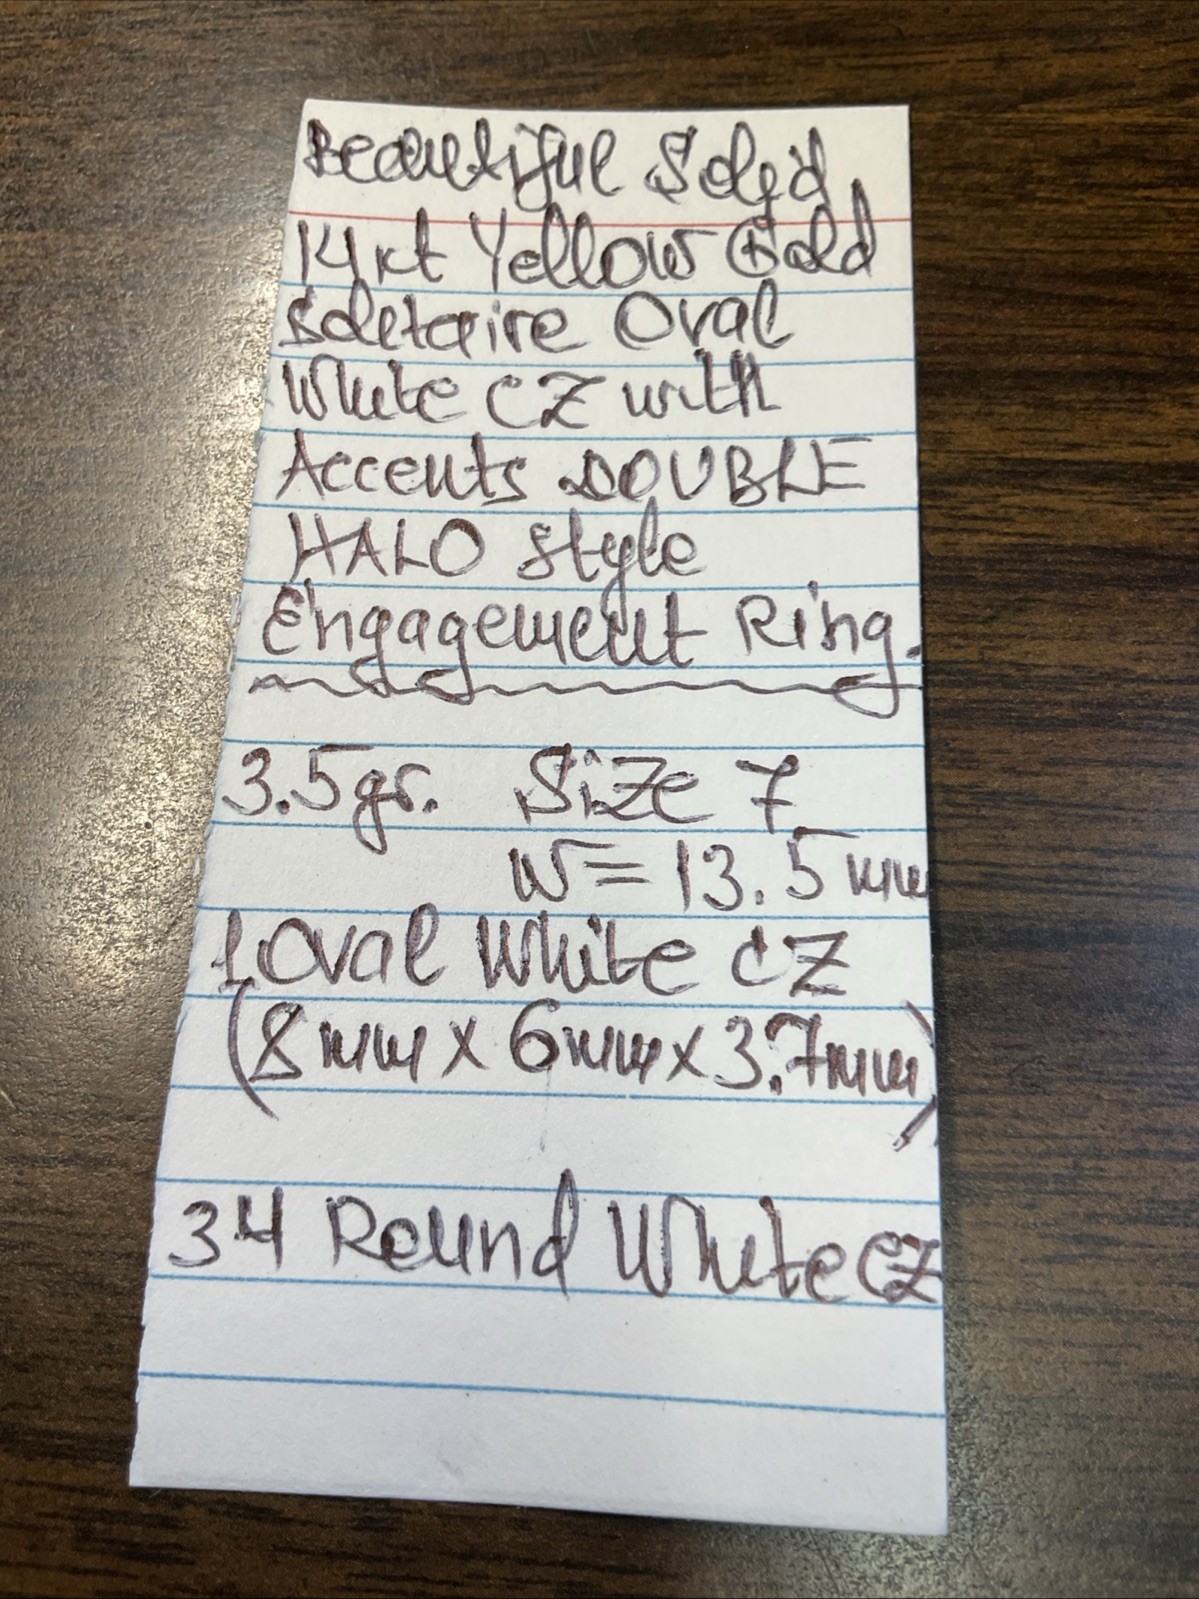 Beautiful Solid
14kt Yellow Gold
Solitaire Oval
White CZ with
Accents DOUBLE
HALO Style
Engagement Ring.
3.5gr. Size 7
W=13.5mm
1 Oval White CZ
(8mm x 6mm x 3.7mm)
34 Round White CZ